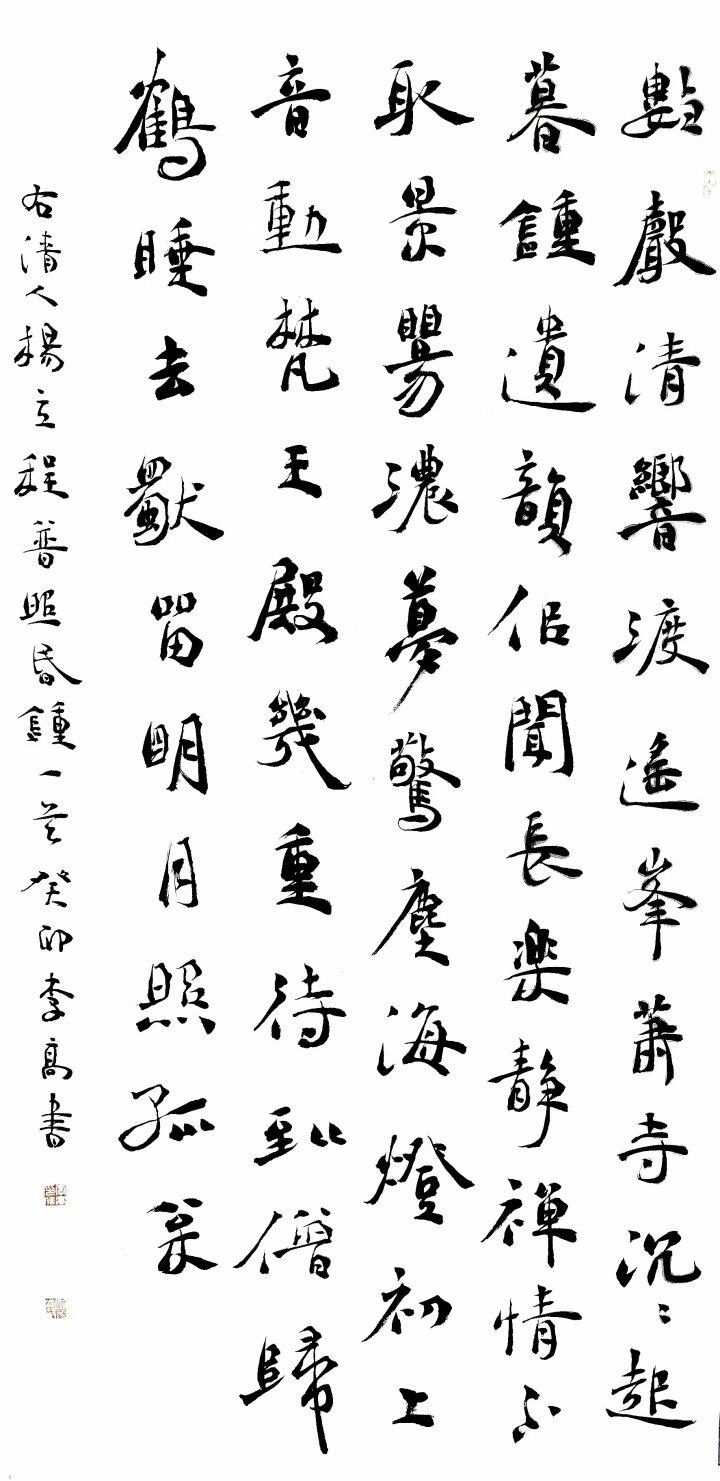 數聲清響渡遙峯蕭寺沉〻起
暮鍾遺韻但聞長樂靜禪情不
取景暘濃夢驚塵海燈初上
音動梵王殿幾重待到僧歸
鶴睡去獨留明月照孤枀
右清人楊立程普照昏鍾一首癸卯李高書